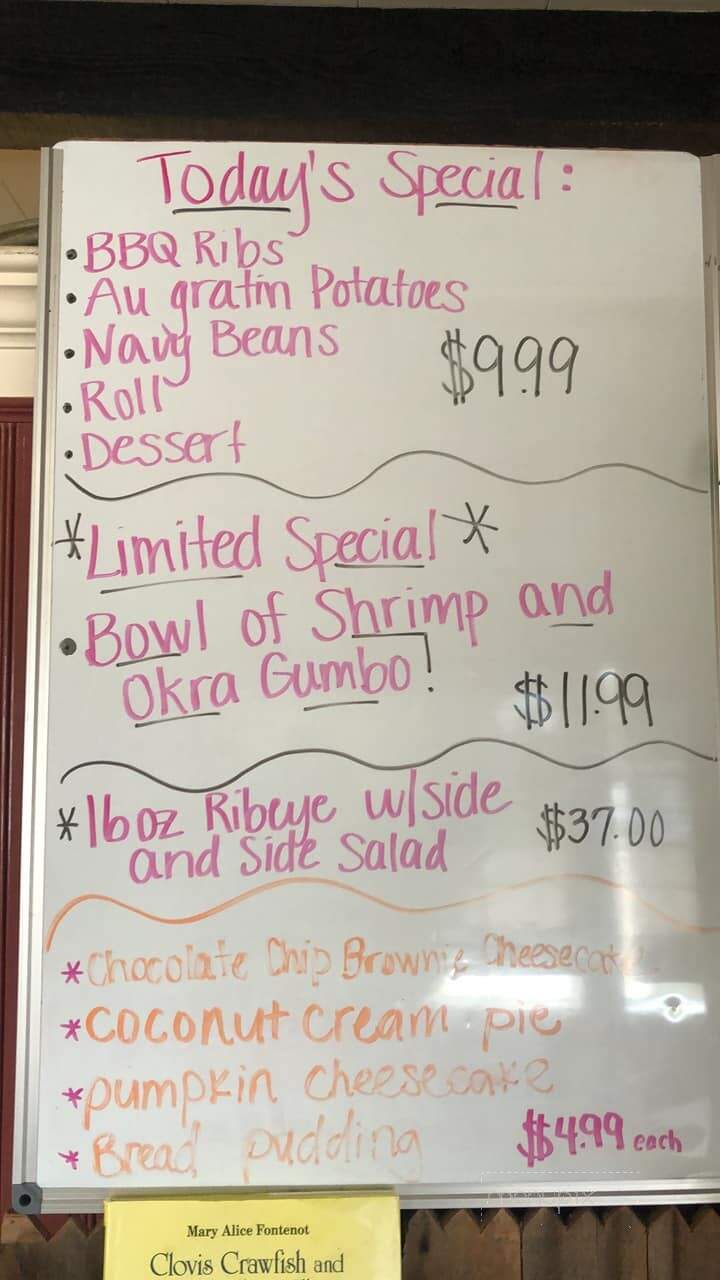 Today's Special:
• BBQ Ribs
• Au gratin Potatoes
• Navy Beans
$9.99
• Roll
• Dessert
*Limited Special*
• Bowl of Shrimp and
Okra Gumbo!
$11.99
*16oz Ribeye w/side
and Side Salad
$37.00
*Chocolate Chip Brownie Cheesecake
*coconut cream pie
*pumpkin cheesecake
*Bread pudding
$4.99 each
Mary Alice Fontenot
Clovis Crawfish and